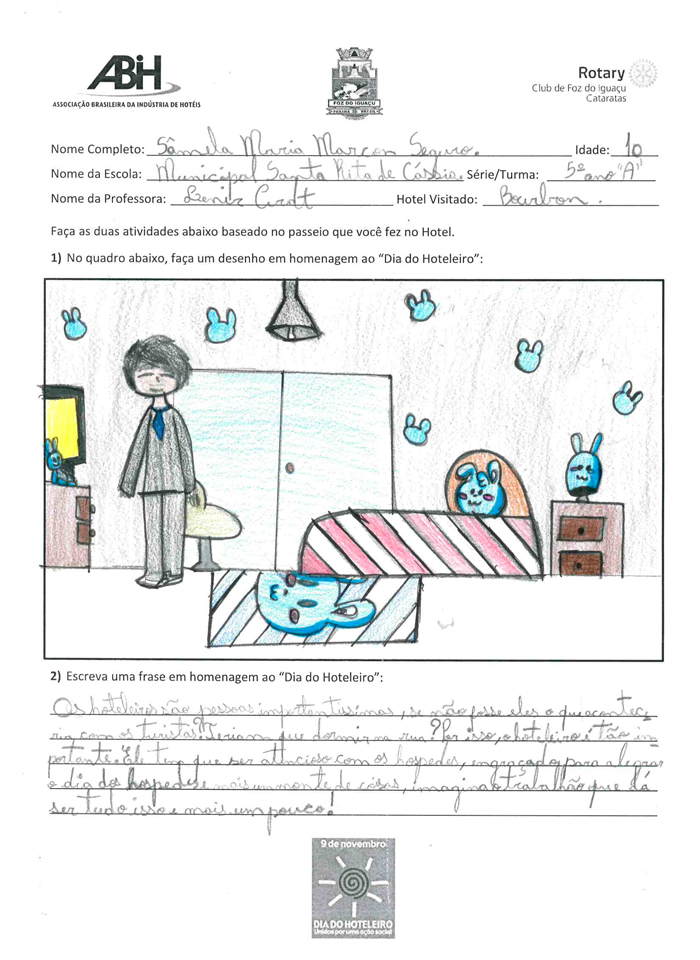 ABIH
ASSOCIAÇÃO BRASILEIRA DA INDÚSTRIA DE HOTÉIS
FOZ DO IGUAÇU
PARANÁ BRASIL
Rotary
Club de Foz do Iguaçu
Cataratas
Nome Completo: Sâmela Maria Marcon Seguro. Idade: 10
Nome da Escola: Municipal Santa Rita de Cássia. Série/Turma: 5º ano "A"
Nome da Professora: Lenir Hotel Visitado: Bourbon.
Faça as duas atividades abaixo baseado no passeio que você fez no Hotel.
1) No quadro abaixo, faça um desenho em homenagem ao "Dia do Hoteleiro":
2) Escreva uma frase em homenagem ao "Dia do Hoteleiro":
Os hoteleiros são pessoas importantíssimas, se não fosse eles o que acontec
eria com os turistas? Teriam que dormir na rua? Por isso, o hoteleiro é tão im
portante. Ele tem que ser atencioso com os hospedes, engraçado para alegrar
o dia dos hospedes e mais um monte de coisas, imagina o trabalhão que dá
ser tudo isso e mais um pouco!
9 de novembro
DIA DO HOTELEIRO
Unidos por uma ação social